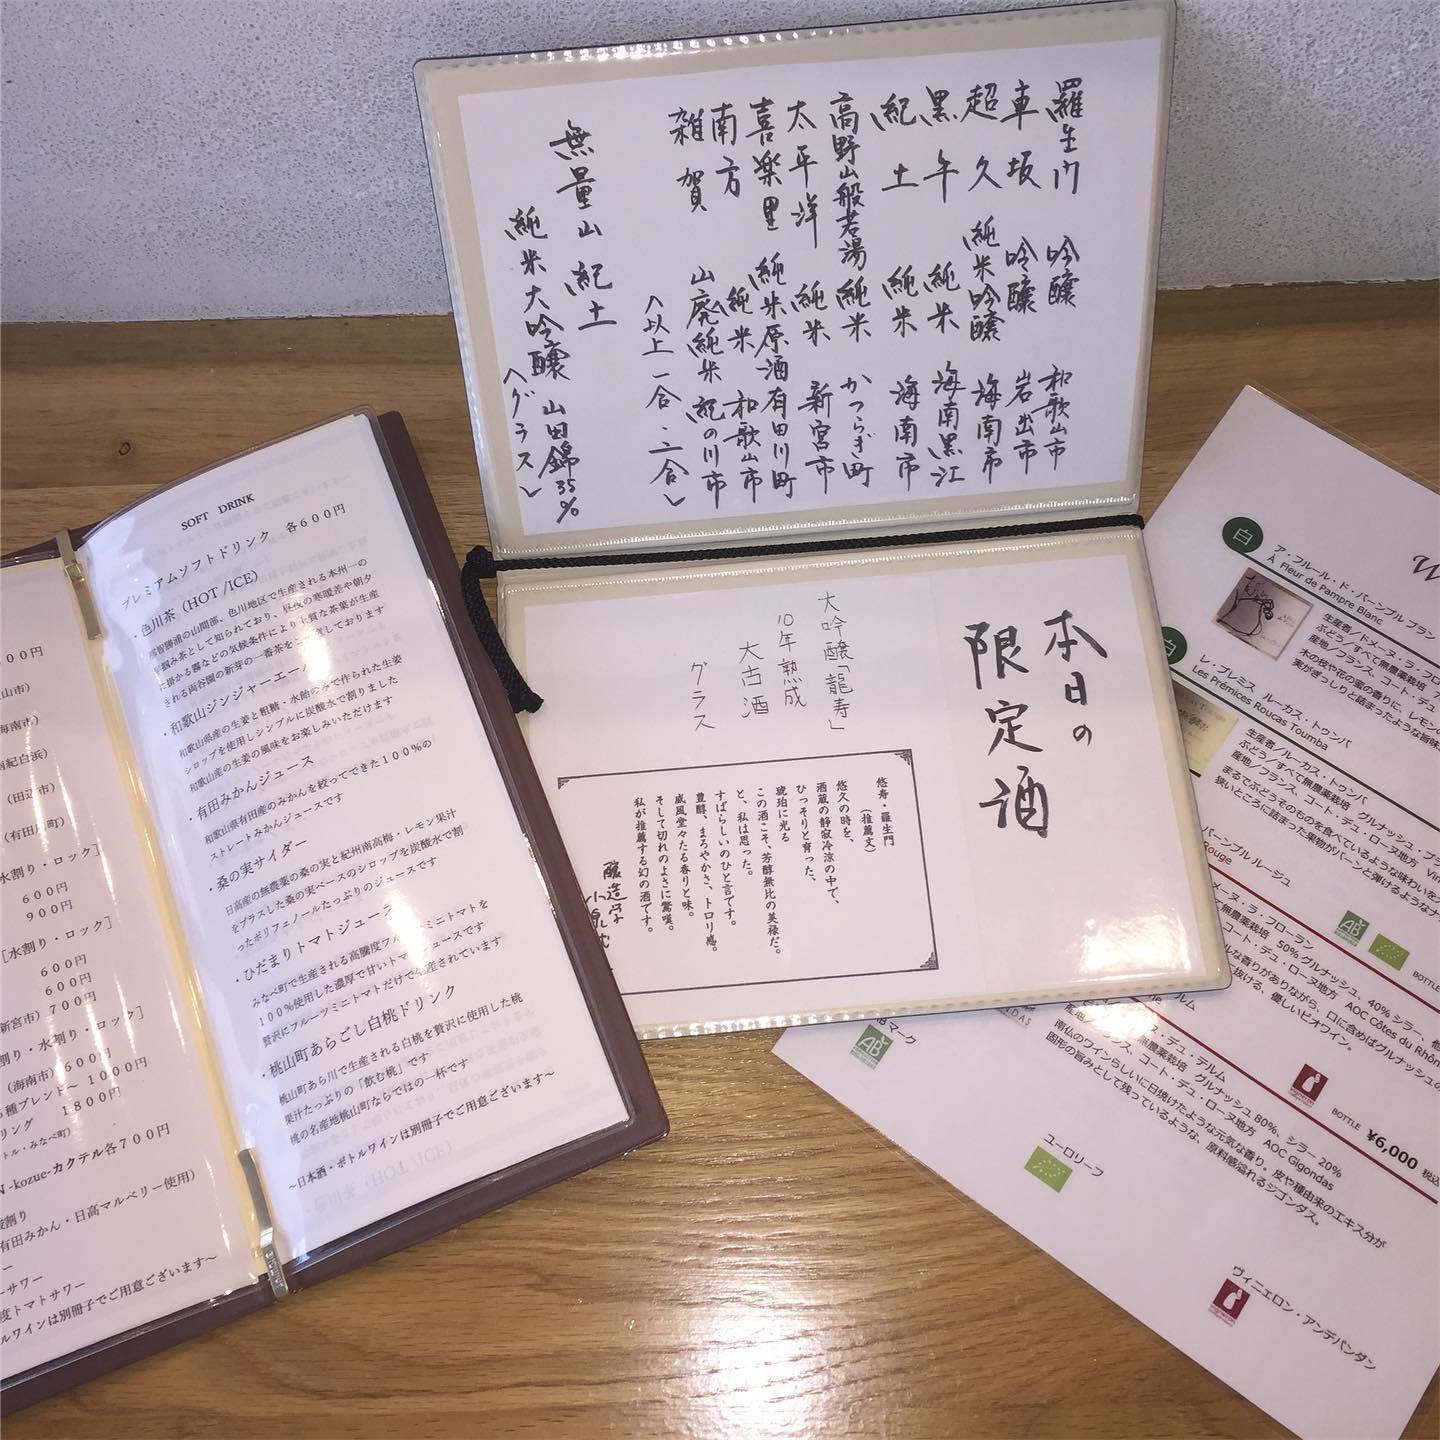 羅生門 吟醸 和歌山市
車坂 吟醸 岩出市
超久 純米吟醸 海南市
黒牛 純米 海南黒江
紀土 純米 海南市
高野山般若湯 純米 かつらぎ町
太平洋 純米 新宮市
喜楽里 純米原酒 有田川町
南方 純米 和歌山市
雑賀 山廃純米 紀の川市
〈以上一合・二合〉
無量山 紀土
純米大吟醸 山田錦35%
〈グラス〉
本日の
限定酒
大吟醸「龍寿」
10年熟成
大古酒
グラス
悠寿・羅生門
（推薦文）
悠久の時を、
酒蔵の静寂冷涼の中で、
ひっそりと育った、
琥珀に光る
この酒こそ、芳醇無比の美禄だ。
と、私は思った。
すばらしいのひと言です。
豊醇、まろやかさ、トロリ感。
威風堂々たる香りと味。
そして切れのよさに驚嘆。
私が推薦する幻の酒です。
醸造学
SOFT DRINK
プレミアムソフトドリンク 各600円
・色川茶（HOT /ICE）
那智勝浦の山間部、色川地区で生産される本州一の
早摘み茶として知られており、昼夜の寒暖差や朝夕
に掛かる霧などの気候条件により上質な茶葉が生産
される両谷園の新芽の一番茶をご用意しております
・和歌山ジンジャーエール
和歌山県産の生姜と粗糖・水飴のみで作られた生姜
シロップを使用しシンプルに炭酸水で割りました
和歌山産の生姜の風味をお楽しみいただけます
・有田みかんジュース
和歌山県有田産のみかんを絞ってできた100%の
ストレートみかんジュースです
・桑の実サイダー
日高産の無農薬の桑の実と紀州南高梅・レモン果汁
をプラスした桑の実ベースのシロップを炭酸水で割
ったポリフェノールたっぷりのジュースです
・ひだまりトマトジュース
みなべ町で生産される高糖度フルーツミニトマトを
100%使用した濃厚で甘いトマトジュースです
贅沢にフルーツミニトマトだけで生産されています
・桃山町あらごし白桃ドリンク
桃山町あら川で生産される白桃を贅沢に使用した桃
果汁たっぷりの「飲む桃」です
桃の名産地桃山町ならではの一杯です
～日本酒・ボトルワインは別冊子でご用意ございます～
００円
山市）
海南市）
南紀白浜）
（田辺市）
（有田川町）
水割り・ロック］
600円
900円
［水割り・ロック］
600円
600円
新宮市）700円
割り・水割り・ロック］
（海南市）600円
種ブレンド～ 1000円
リング 1800円
トル・みなべ町）
N -kozue-カクテル各700円
有田みかん・日高マルベリー使用）
度割り
ー
ーサワー
度トマトサワー
トルワインは別冊子でご用意ございます～
W
白
ア・フルール・ド・パーンプル ブラン
À Fleur de Pampre Blanc
生産者／ドメーヌ・ラ・フロ
ぶどう／すべて無農薬栽培
産地／フランス、コート・デュ・
木の枝や花の蜜の香りに、レモンの
実がぎっしりと詰まったような旨味
白
レ・プレミス ルーカス・トゥンバ
Les Prémices Roucas Toumba
生産者／ルーカス・トゥンバ
ぶどう／すべて無農薬栽培 グルナッシュ・ブラ
産地／フランス、コート・デュ・ローヌ地方 Vin
まるでぶどうそのものを食べているような味わいを
狭いところに詰まった果物がパーンと弾けるようなナ
パーンプル ルージュ
Rouge
ドメーヌ・ラ・フローラン
て無農薬栽培 50% グルナッシュ、40% シラー、他
コート・デュ・ローヌ地方 AOC Côtes du Rhôn
ルな香りがありながら、口に含めばグルナッシュの
抜ける、優しいビオワイン。
BOTTLE
デュ・テルム
無農薬栽培 グルナッシュ 80%、シラー 20%
ランス、コート・デュ・ローヌ地方 AOC Gigondas
南仏のワインらしいに日焼けたような元気な香り。皮や種由来のエキス分が
固形の旨みとして残っているような、原料感溢れるジゴンダス。
BOTTLE ¥6,000 税込
ABマーク
AB
ユーロリーフ
ヴィニェロン・アンデパンダン